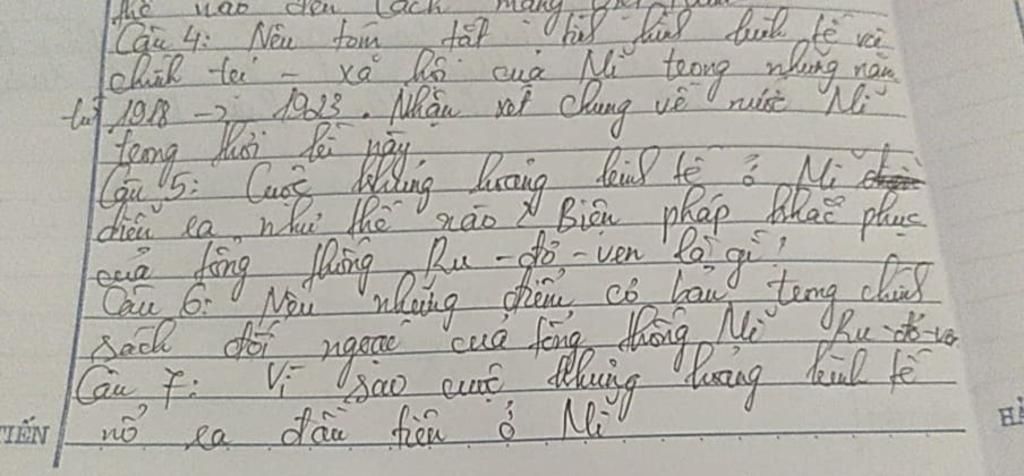 thế nào đến cách mạng
Câu 4: Nêu tóm tắt tình hình kinh tế và
chính trị - xã hội của Mĩ trong những năm
từ 1918 -> 1923. Nhận xét chung về nước Mĩ
trong thời kì này
Câu 5: Cuộc khủng hoảng kinh tế ở Mĩ
diễn ra như thế nào? Biện pháp khắc phục
của tổng thống Ru-đơ-ven là gì?
Câu 6: Nêu những điểm cơ bản trong chính
sách đối ngoại của tổng thống Mĩ Ru-đơ-ve
Câu 7: Vì sao cuộc khủng hoảng kinh tế
nổ ra đầu tiên ở Mĩ
TIẾN